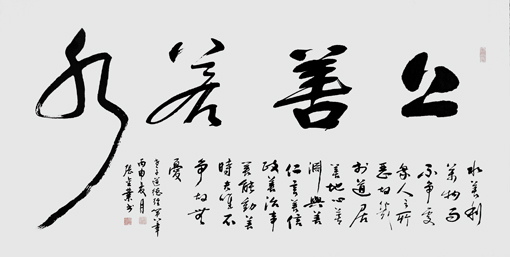 上善若水
水善利
萬物而
不爭處
眾人之所
惡故幾
於道居
善地心善
淵與善
仁言善信
政善治事
善能動善
時夫唯不
爭故無
憂
老子道德經第八章
丙申夏月
張業書